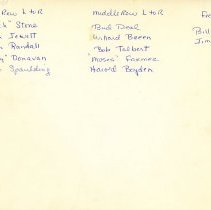 Row L to R
Stone
Jewett
Randall
Donovan
Spaulding
Middle Row L to R
Bud Deal
Willard Breen
"Bob" Talbert
"Moses" Farmer
Harold Boyden
Bill
Jim